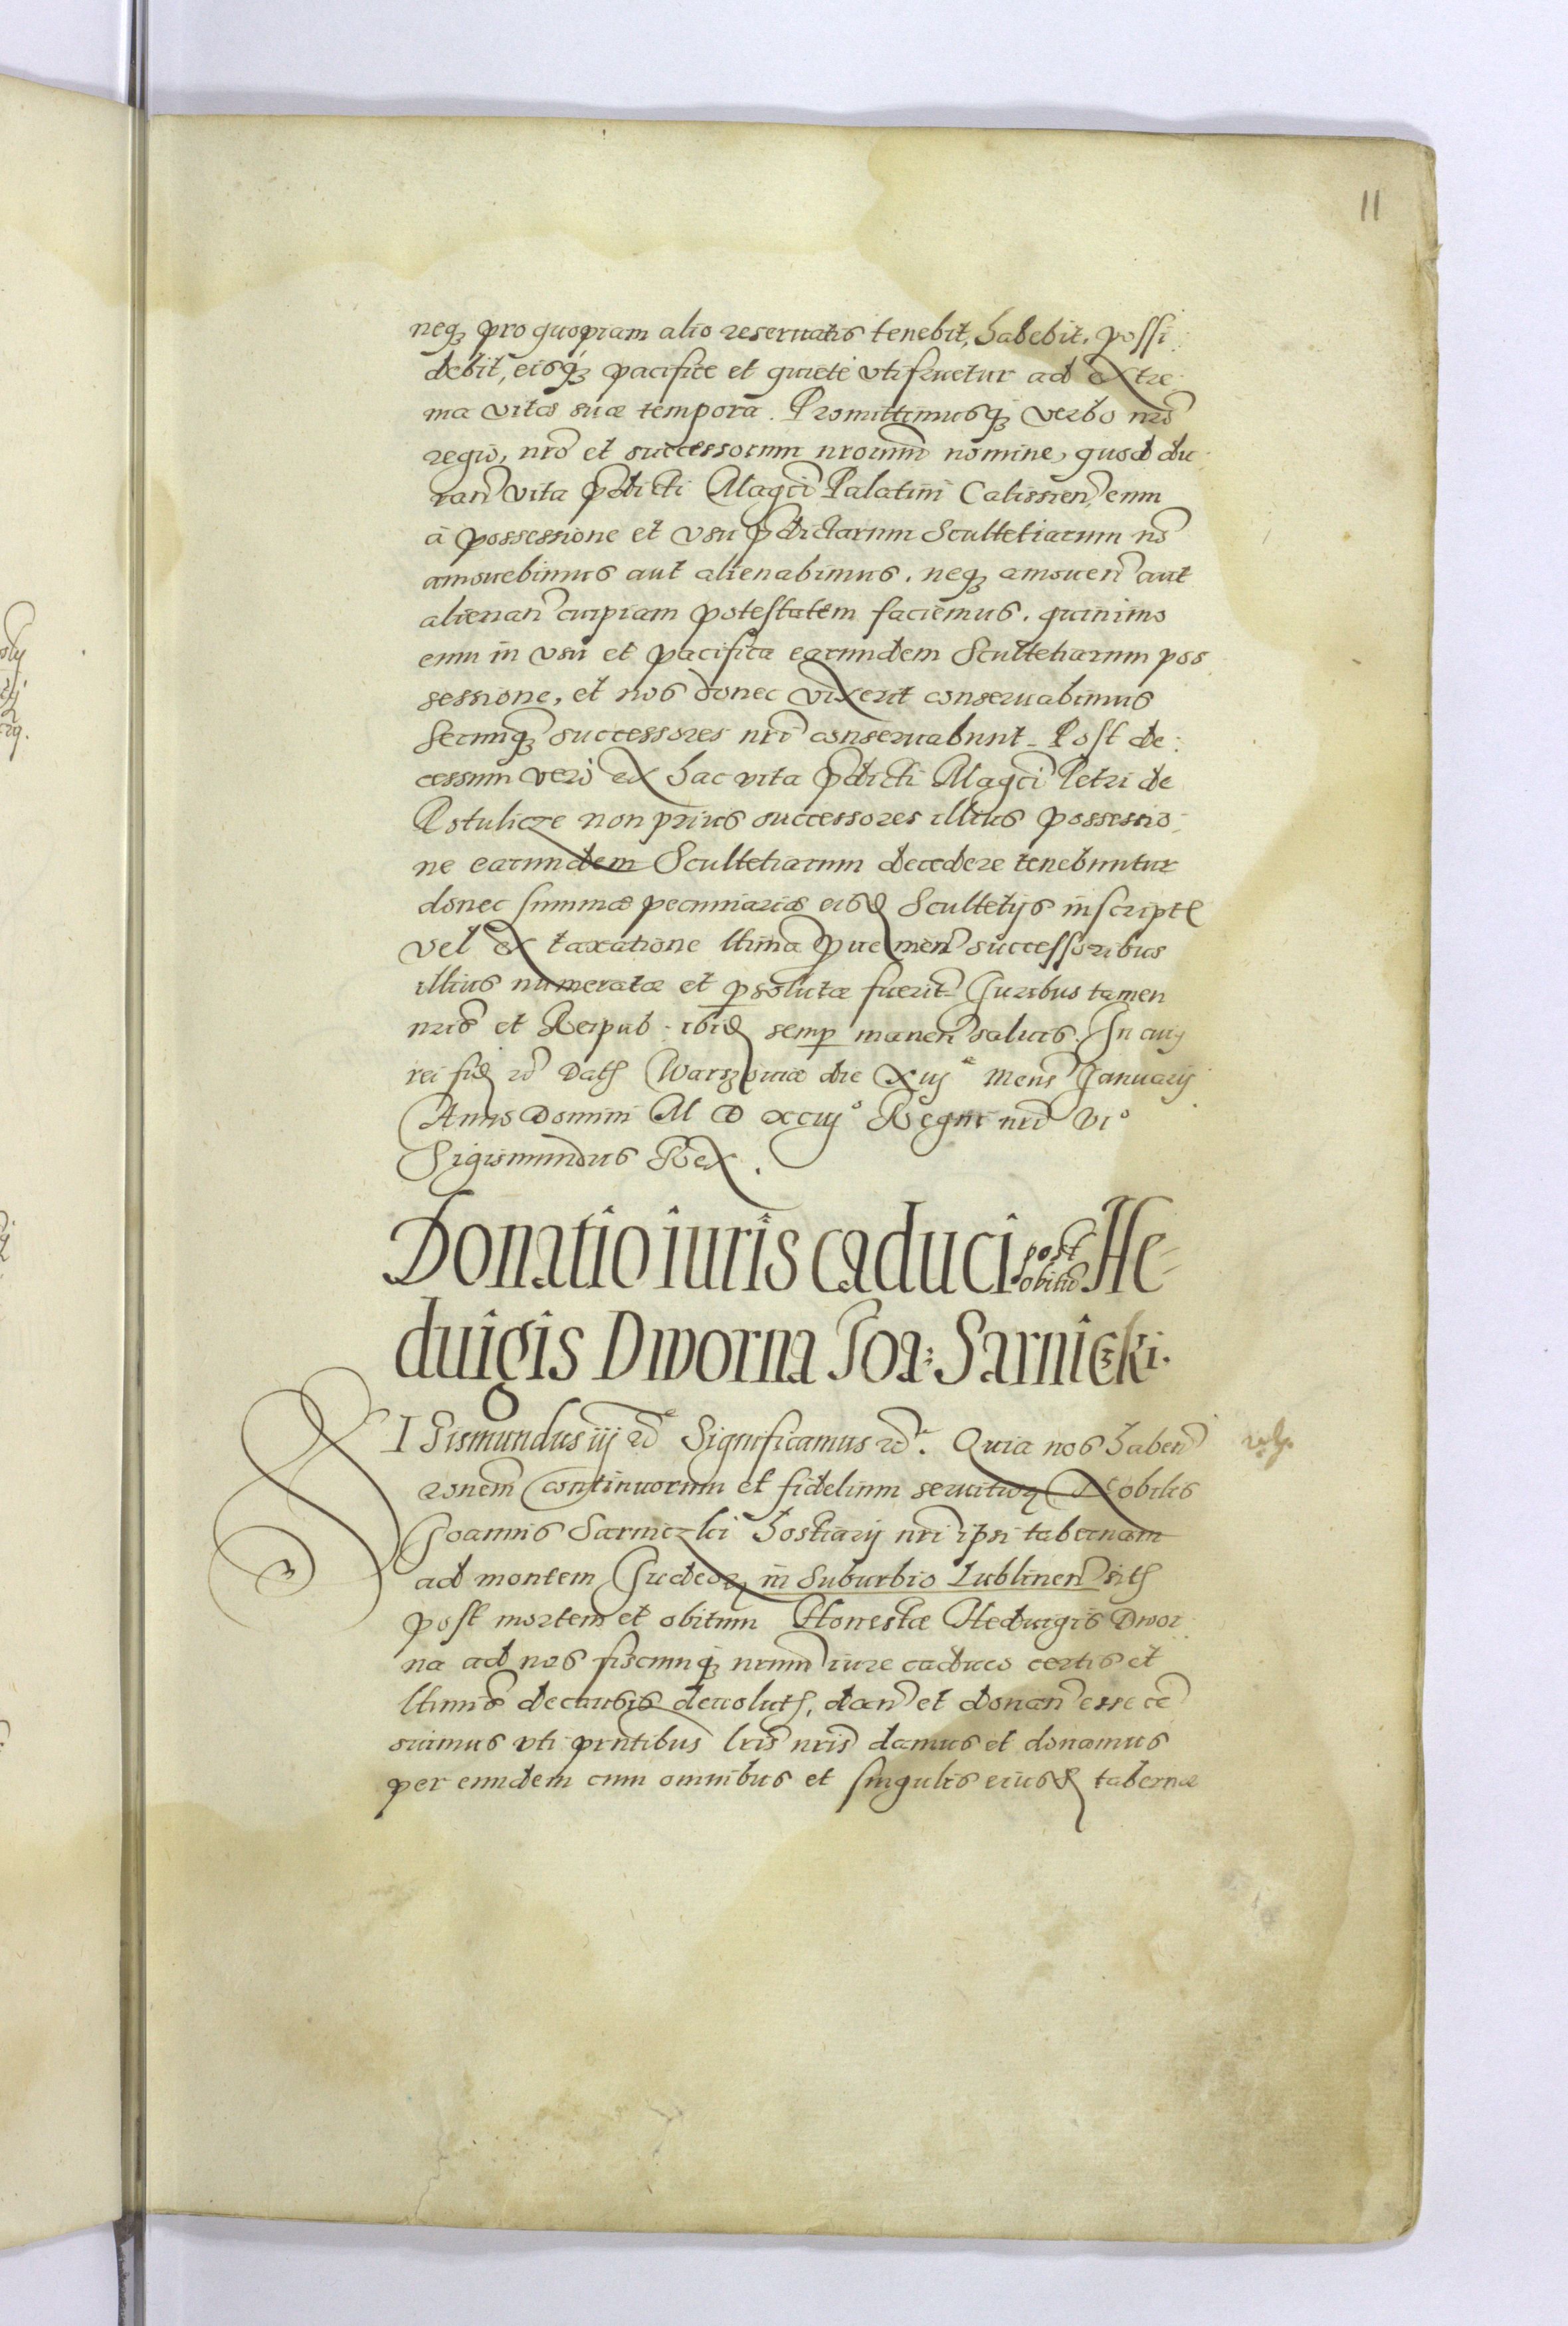 11
neq₃ pro quopiam alio reseruatis tenebit, habebit, possi:
debit, eisq́₃ pacifice et quietè vtifruetur ad extre:
ma vitæ suæ tempora. Promittimusq́₃ verbo nr̃o
regio, nr̃o et successorum nr̃orum nomine, quod du:
ran̄ vita p̄dicti Mag̃ci Palatini Calissien̄, eum
à possessione et vsu p̄dictarum Scultetiarum nō
amouebimus aut alienabimus, neq₃ amouen̄ aut
alienan̄ cuipiam potestatem faciemus, quinimo
eum in vsu et pacifica earundem Scultetiarum pos
sessione, et nos donec vixerit conseruabimus
Serimiq₃ successores nr̃i conseruabunt. Post de:
cessum verò ex hac vita p̄dicti Mag̃ci Petri de
Potulicze non prius successores illius possessio:
ne earundem Scultetiarum decedere tenebuntur
donec summæ pecuniariæ eisd Scultetijs inscriptę
vel ex taxatione ltima puenien̄ successoribus
illius numeratæ et p̱solutæ fuerit. Juribus tamen
nris et Reipub. ibid semp̱ manen̄ saluis. In cuiꝰ
rei fid rc̄ Datꝭ Warszouiæ die Xiijᵃ Mens Januarij
Anno Domini M D xciijº Regni nr̄i viº
Sigismundus Rex.
Donatio iuris caduci post obitū He-
duigis Dworna Joa: Sarniczki.
SIGismundus iij rc̄ Significamus rc̄. Quia nos haben̄
rōnem continuorum et fidelium seruitioꝝ Nobilis
Joannis Sarniczki hostiarij nr̄i ipsi tabernam
ad montem Judeoꝝ in Suburbio Lublinen̄ sitꝭ
post mortem et obitum Honestæ Heduigis Dwor
na ad nos fiscumq́₃ nr̄um iure caduco certis et
ltimis de causis deuolutꝭ, dan̄ et donan̄ esse cē
suimus vti prn̄tibus lr̄is nr̄is damus et donamus
per eundem cum omnibus et singulis eiusd tabernæ